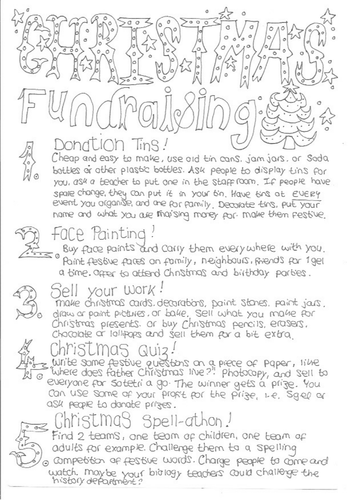 CHRISTMAS
Fundraising
1. Donation Tins!
Cheap and easy to make, use old tin cans, jam jars, or soda
bottles or other plastic bottles. Ask people to display tins for
you, ask a teacher to put one in the staffroom. If people have
spare change, they can put it in your tin. Have tins at EVERY
event you organise, and one for family. Decorate tins, put your
name and what you are raising money for make them festive.
2. Face Painting!
Buy face paints and carry them everywhere with you.
Paint festive faces on family, neighbours, friends for 1 gel
a time, offer to attend Christmas and birthday parties.
3. Sell your work!
make Christmas cards, decorations, paint stones, paint jars,
draw or paint pictures, or bake. Sell what you make for
Christmas presents, or buy Christmas pencils, erasers,
chocolate or lollipops and sell them for a bit extra.
4. Christmas Quiz!
Write some festive questions on a piece of paper, like
where does father Christmas live?! Photocopy, and sell to
everyone for 50tetri a go. The winner gets a prize. You
can use some of your profit for the prize, i.e. 5gel or
ask people to donate prizes.
5. Christmas Spell-athon!
Find 2 teams, one team of children, one team of
adults for example. Challenge them to a spelling
competition of festive words. Charge people to come and
watch. Maybe your biology teachers could challenge the
history department?